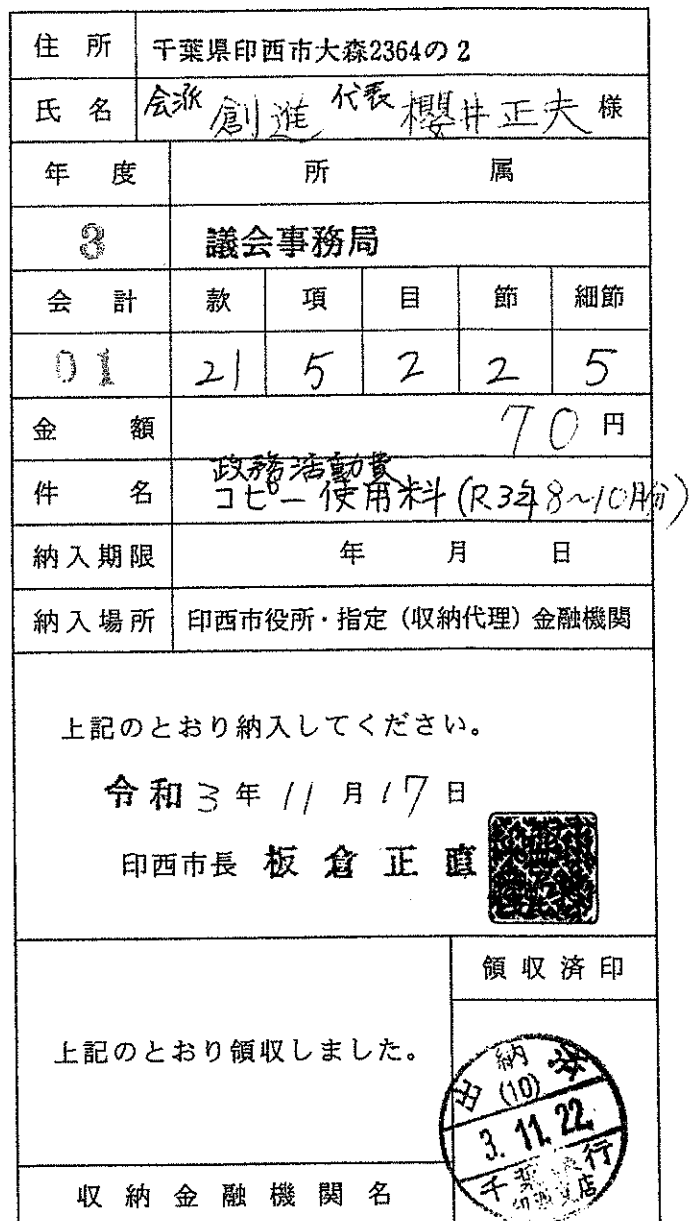 住所 千葉県印西市大森2364の2
氏名 会派 創進 代表 櫻井正夫 様
年度 所属
3 議会事務局
会計 款 項 目 節 細節
01 21 5 2 2 5
金額 70円
政務活動費
件名 コピー使用料(R3年8~10月分)
納入期限 年 月 日
納入場所 印西市役所・指定(収納代理)金融機関
上記のとおり納入してください。
令和3年11月17日
印西市長 板倉正直
領収済印
上記のとおり領収しました。
出納済
(10)
3.11.22
千葉銀行
支店
収納金融機関名